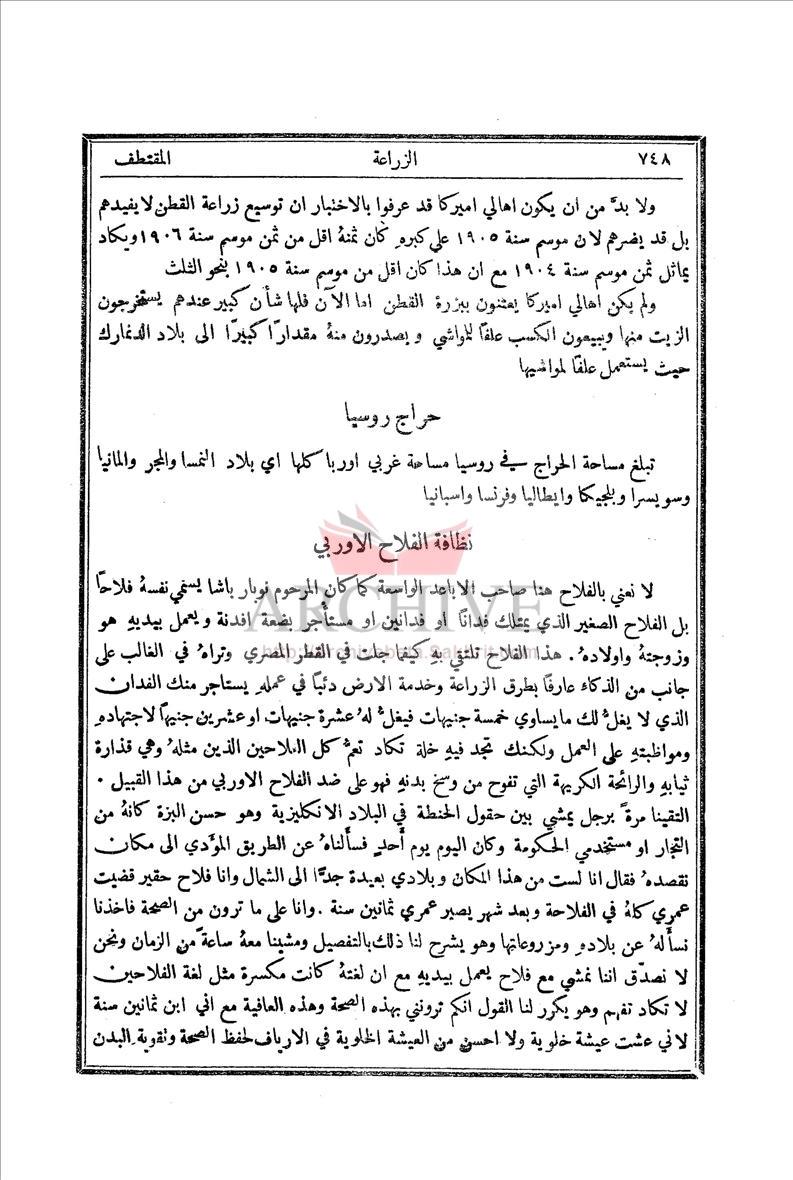 ٧٤٨ الزراعة المقتطف
ولا بدَّ من ان يكون اهالي اميركا قد عرفوا بالاختبار ان توسيع زراعة القطن لا يفيدهم
بل قد يضرهم لان موسم سنة ١٩٠٥ على كبرهِ كان ثمنهُ اقل من ثمن موسم سنة ١٩٠٦ ويكاد
يماثل ثمن موسم سنة ١٩٠٤ مع ان هذا كان اقل من موسم سنة ١٩٠٥ بنحو الثلث
ولم يكن اهالي اميركا يعتنون ببزرة القطن اما الآن فلها شأن كبير عندهم يستخرجون
الزيت منها ويبيعون الكسب علفًا للمواشي ويصدرون منهُ مقدارًا كبيرًا الى بلاد الدنمارك
حيث يستعمل علفًا لمواشيها
حراج روسيا
تبلغ مساحة الحراج في روسيا مساحة غربي اوربا كلها اي بلاد النمسا والمجر والمانيا
وسويسرا وبلجيكا وايطاليا وفرنسا واسبانيا
نظافة الفلاح الاوربي
لا نعني بالفلاح هنا صاحب الاباعد الواسعة كما كان المرحوم نوبار باشا يسمي نفسهُ فلاحًا
بل الفلاح الصغير الذي يمتلك فدانًا أو فدانين او مستأجر بضعة افدنة ويعمل بيديهِ هو
وزوجتهُ واولادهُ. هذا الفلاح تلتقي بهِ كيفما جلت في القطر المصري وتراهُ في الغالب على
جانب من الذكاء عارفًا بطرق الزراعة وخدمة الارض دئبًا في عملهِ يستاجر منك الفدان
الذي لا يغلُّ لك ما يساوي خمسة جنيهات فيغلُّ لهُ عشرة جنيهات او عشرين جنيهًا لاجتهادهِ
ومواظبتهِ على العمل ولكنك تجد فيهِ خلة تكاد تعمُّ كل الفلاحين الذين مثلهُ وهي قذارة
ثيابهِ والرائحة الكريهة التي تفوح من وسخ بدنهِ فهو على ضد الفلاح الاوربي من هذا القبيل .
التقينا مرةً برجل يمشي بين حقول الحنطة في البلاد الانكليزية وهو حسن البزة كانهُ من
التجار او مستخدمي الحكومة وكان اليوم يوم أحدٍ فسألناهُ عن الطريق المؤدي الى مكان
نقصدهُ فقال انا لست من هذا المكان وبلادي بعيدة جدًّا الى الشمال وانا فلاح حقير قضيت
عمري كلهُ في الفلاحة وبعد شهر يصير عمري ثمانين سنة . وانا على ما ترون من الصحة فاخذنا
نسألهُ عن بلادهِ ومزروعاتها وهو يشرح لنا ذلك بالتفصيل ومشينا معهُ ساعةً من الزمان ونحن
لا نصدّق اننا نمشي مع فلاح يعمل بيديهِ مع ان لغتهُ كانت مكسرة مثل لغة الفلاحين
لا تكاد تفهم وهو يكرر لنا القول انكم ترونني بهذه الصحة وهذه العافية مع اني ابن ثمانين سنة
لاني عشت عيشة خلوية ولا احسن من العيشة الخلوية في الارياف لحفظ الصحة وتقوية البدن
ARCHIVE